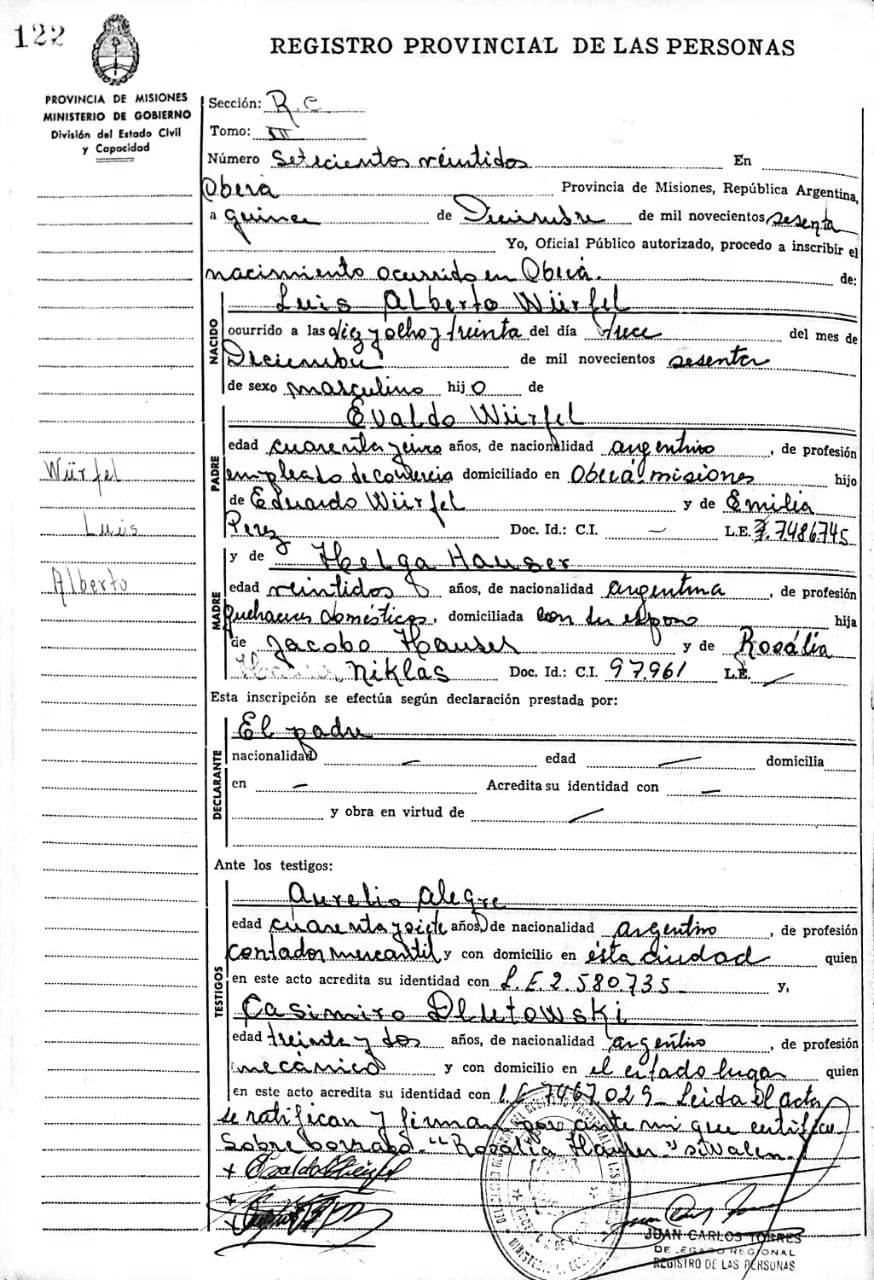 122
REGISTRO PROVINCIAL DE LAS PERSONAS
PROVINCIA DE MISIONES
MINISTERIO DE GOBIERNO
División del Estado Civil
y Capacidad
Sección: R.C
Tomo: III
Número Setecientos veintidos En
Oberá Provincia de Misiones, República Argentina,
a quince de Diciembre de mil novecientos sesenta
Yo, Oficial Público autorizado, procedo a inscribir el
nacimiento ocurrido en Oberá. de:
NACIDO
Luis Alberto Würfel
ocurrido a las diez y ocho y treinta del día trece del mes de
Diciembre de mil novecientos sesenta
de sexo masculino hijo de
PADRE
Evaldo Würfel
edad cuarenta y cinco años, de nacionalidad argentino, de profesión
empleado de comercio domiciliado en Oberá-misiones hijo
de Eduardo Würfel y de Emilia
Perez Doc. Id.: C.I. — L.E. 7.486745
MADRE
y de Helga Hauser
edad veintidos años, de nacionalidad argentina, de profesión
quehaceres domésticos, domiciliada con su esposo hija
de Jacobo Hauser y de Rosália
Niklas Doc. Id.: C.I. 97.961 L.E. —
Würfel
Luis
Alberto
Esta inscripción se efectúa según declaración prestada por:
DECLARANTE
El padre
nacionalidad — edad — domicilia
en — Acredita su identidad con —
y obra en virtud de —
Ante los testigos:
TESTIGOS
Aurelio Alegre
edad cuarenta y siete años, de nacionalidad argentino, de profesión
contador mercantil y con domicilio en ésta ciudad quien
en este acto acredita su identidad con L.E. 2.580.735 y,
Casimiro Dlutowski
edad treinta y dos años, de nacionalidad argentino, de profesión
mecánico y con domicilio en el citado lugar quien
en este acto acredita su identidad con L.E 7467.029 Leida el acta
se ratifican y firman por ante mi que certifico
Sobre borrado "Rosalia Hauser" si valen.
JUAN CARLOS TORRES
DELEGADO REGIONAL
REGISTRO DE LAS PERSONAS